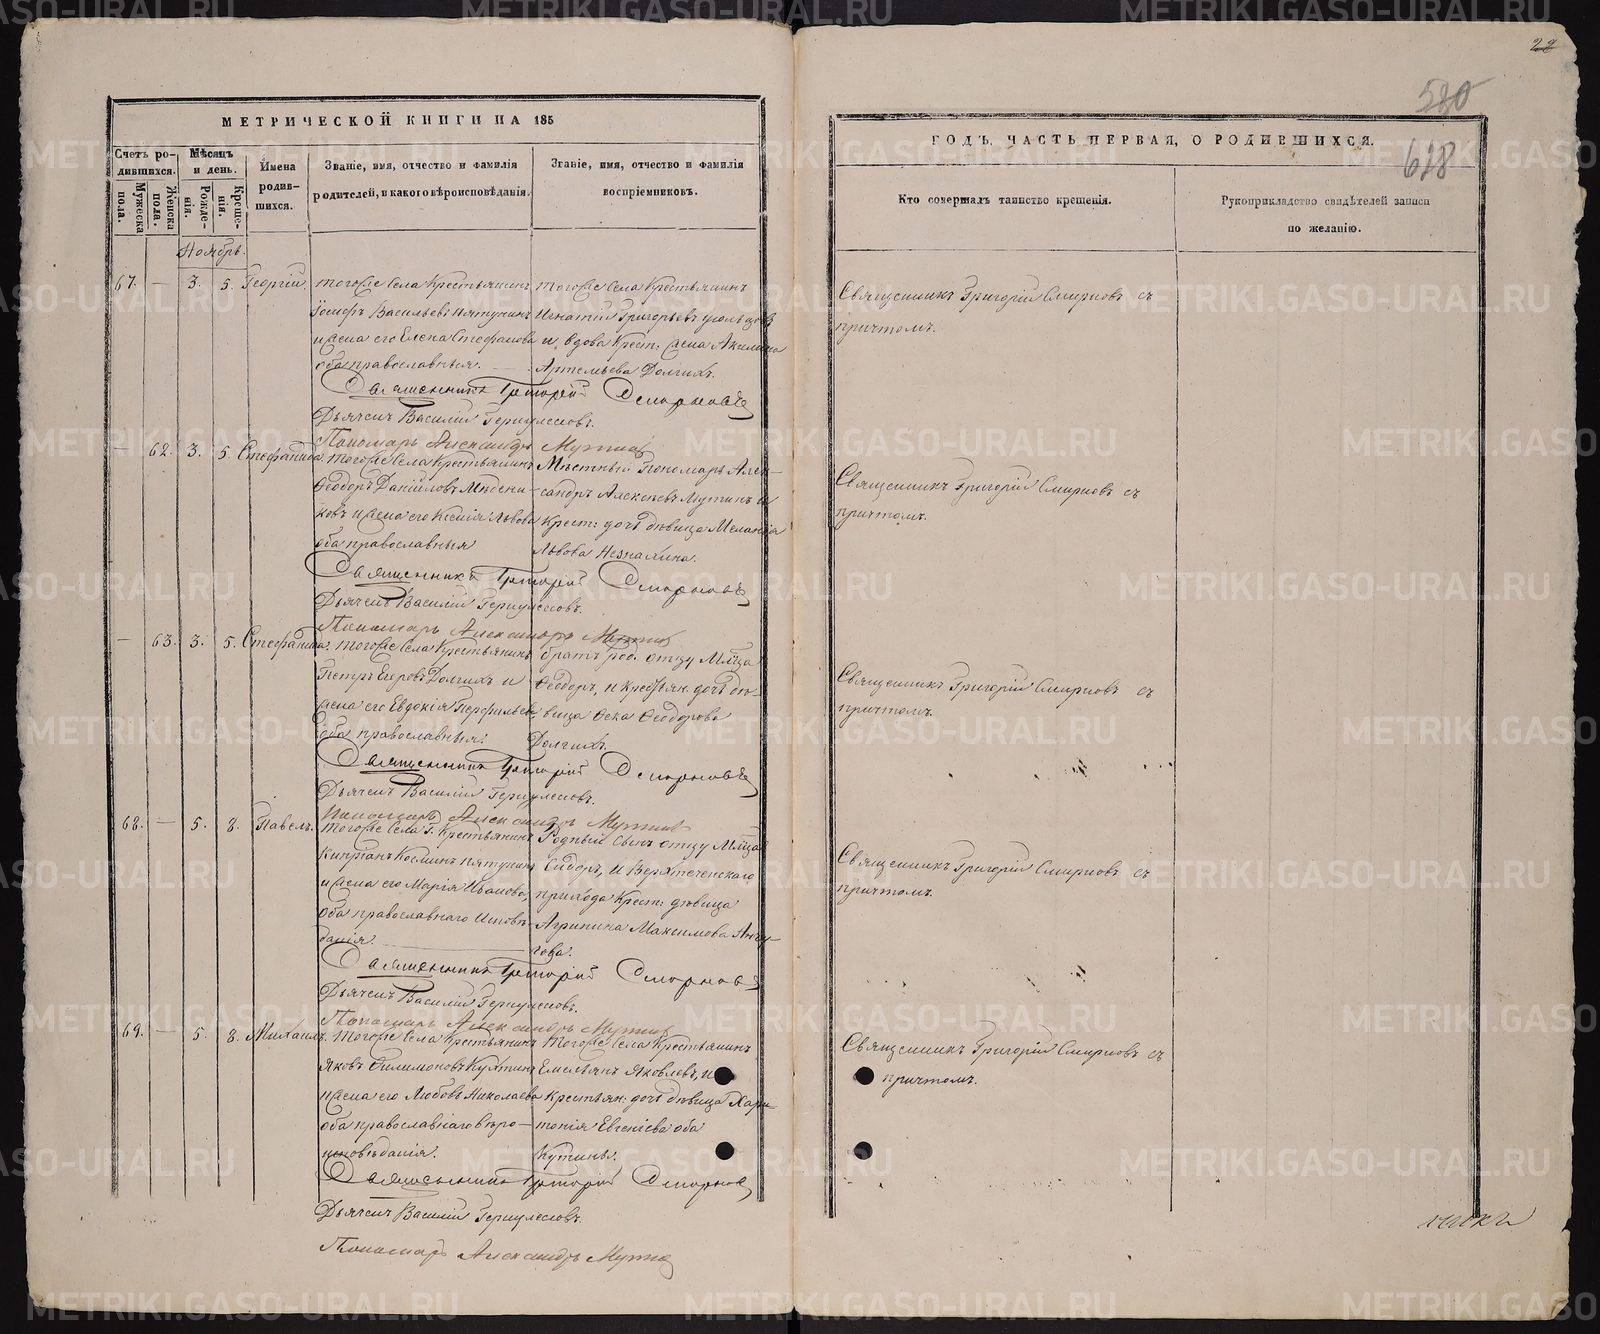 22
580
618
МЕТРИЧЕСКОЙ КНИГИ НА 185
ГОДЪ, ЧАСТЬ ПЕРВАЯ, О РОДИВШИХСЯ.
Счетъ родившихся.
Мужеска пола.
Женска пола.
Мѣсяцъ и день.
Рожденія.
Крещенія.
Имена родившихся.
Званіе, имя, отчество и фамилія
родителей, и какого вѣроисповѣданія.
Званіе, имя, отчество и фамилія
воспріемниковъ.
Кто совершалъ таинство крещенія.
Рукоприкладство свидѣтелей записи
по желанію.
Ноябрь.
67. — 3. 5. Георгій.
тогоже села Крестьянинъ
Іосифъ Васильевъ Пятунинъ
и жена его Елена Стефанова
оба православныя.
тогоже села Крестьянинъ
Игнатій Григорьевъ
и вдова Крест: жена Акилина
Артемьева Долгихъ.
Священникъ Григорій Смирновъ съ
причтомъ.
Священникъ Григорій Смирновъ
Дьячекъ Василій
Пономарь Александръ
— 62. 3. 5. Стефанида
тогоже села Крестьянинъ
Ѳеодоръ Даніиловъ
ковъ и жена его Ксенія Львова
оба православныя
Мѣстный Пономарь Алек-
сандръ Алексѣевъ и
Крест: дочь дѣвица Меланія
Львова
Священникъ Григорій Смирновъ съ
причтомъ.
Священникъ Григорій Смирновъ
Дьячекъ Василій
Пономарь Александръ
— 63. 3. 5. Стефанида.
тогоже села Крестьянинъ
Петръ Егоровъ Долгихъ и
жена его Евдокія Перфильева
оба православныя.
братъ род. отцу Мл̃нца
Ѳеодоръ, и Крестьян. дочь дѣ-
вица Ѳекла Ѳеодорова
Долгихъ.
Священникъ Григорій Смирновъ съ
причтомъ.
Священникъ Григорій Смирновъ
Дьячекъ Василій
Пономарь Александръ
68. — 5. 8. Павелъ.
тогоже села Крестьянинъ
Кипріанъ Косминъ Пятунинъ
и жена его Марія Иванова,
оба православнаго исповѣ-
данія.
Родный сынъ отцу Мл̃нца
Сидоръ, и
прихода Крест: дѣвица
Агрипина Максимова
Священникъ Григорій Смирновъ съ
причтомъ.
Священникъ Григорій Смирновъ
Дьячекъ Василій
Пономарь Александръ
69. — 5. 8. Михаилъ.
тогоже села Крестьянинъ
Яковъ Филимоновъ
и жена его Любовь Николаева
оба православнаго вѣро-
исповѣданія.
тогоже села Крестьянинъ
Емельянъ Яковлевъ, и
Крестьян: дочь дѣвица Хари-
тонія Евгеніева оба
Священникъ Григорій Смирновъ съ
причтомъ.
Священникъ Григорій Смирновъ
Дьячекъ Василій
Пономарь Александръ
METRIKI.GASO-URAL.RU